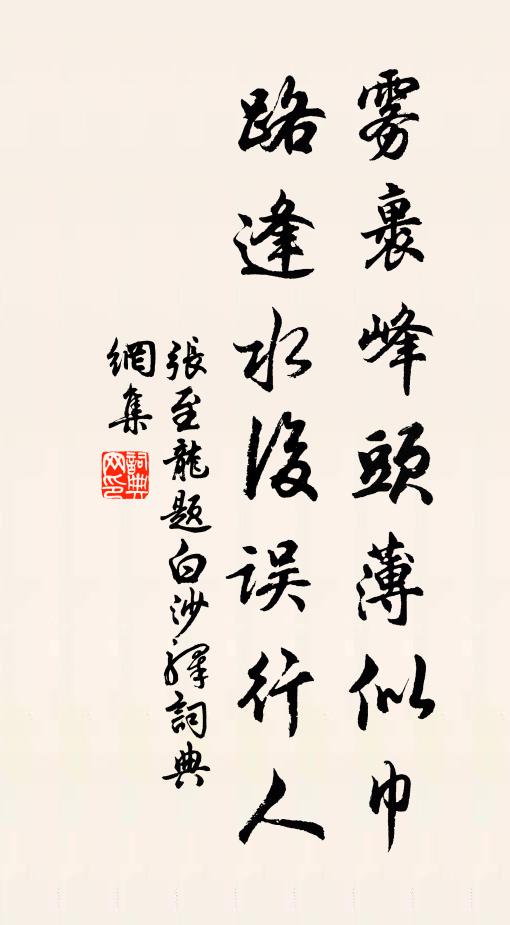 雾裹峰頭薄似巾
路逢水後误行人
張至龍题白沙驛詞典
網集
詞典
网印